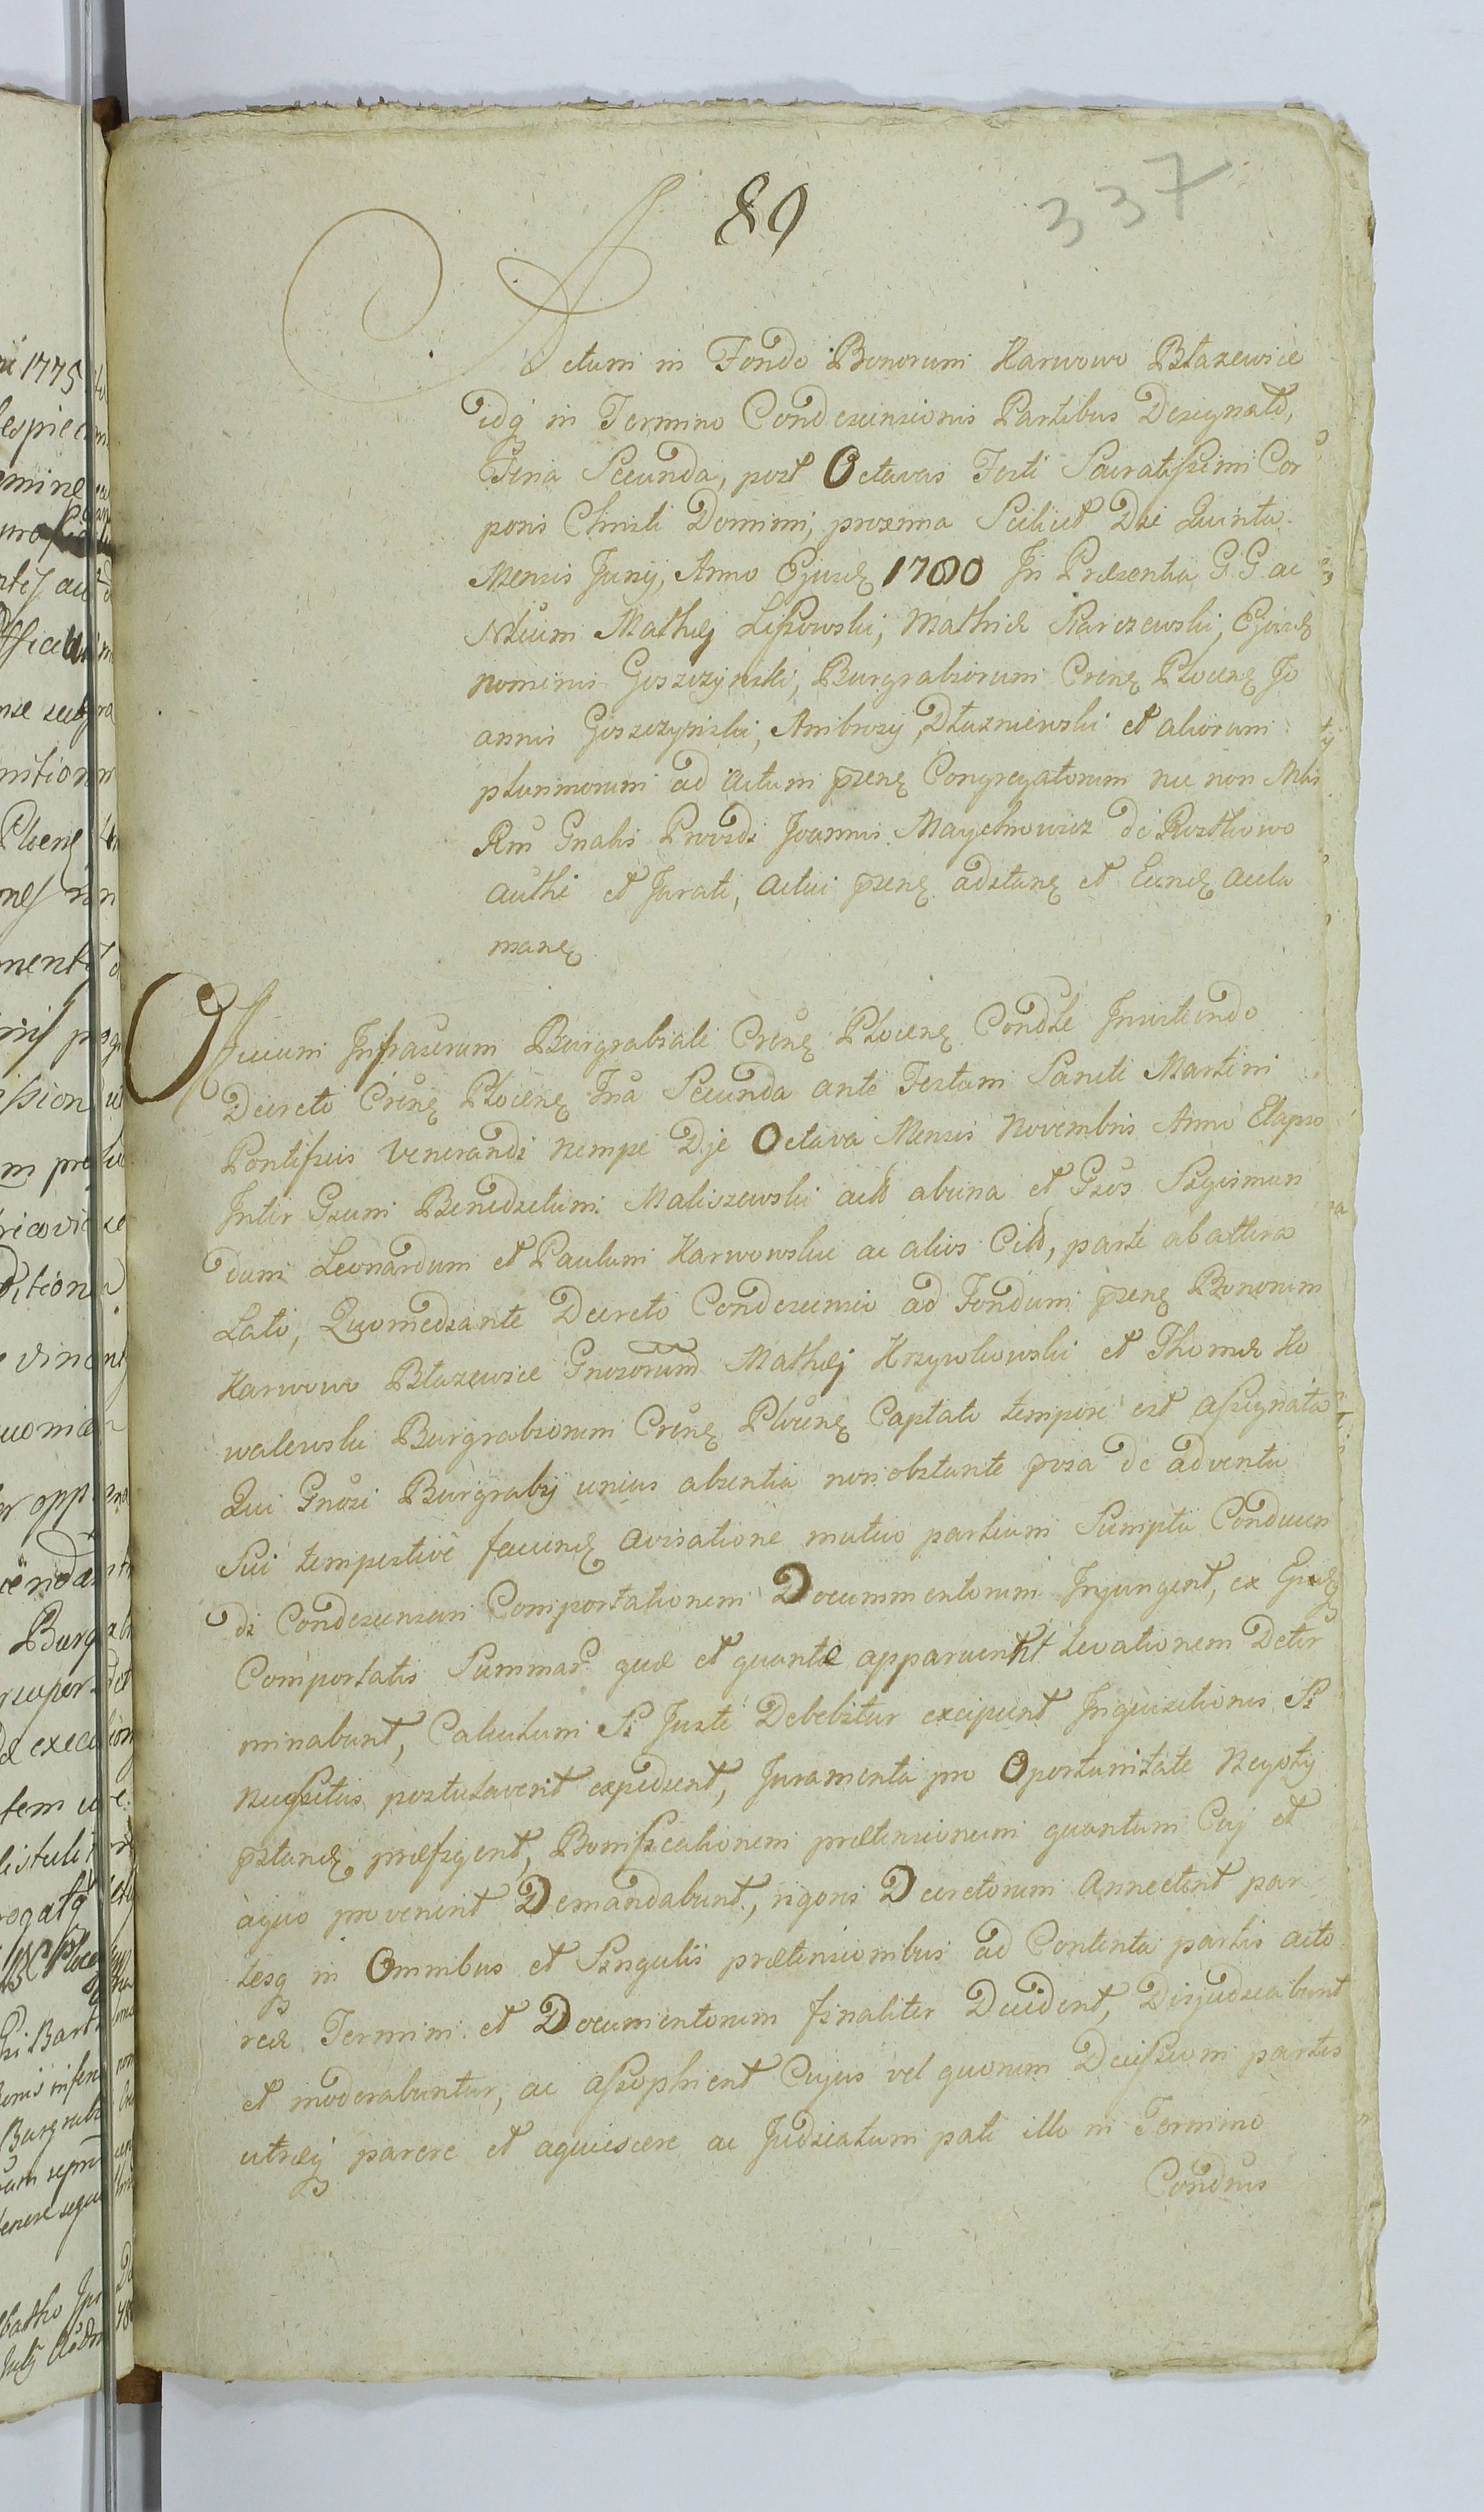 89
337
Actum in Fondo Bonorum Karwowo Błażewice
idq in Termino Condescensionis Partibus Designato,
Feria Secunda, post Octavas Festi Sacratissimi Cor
poris Christi Domini, proxima Scilicet Die Quinta
Mensis Junij, Anno Ejusd 1780 In Præsentia G.G. ac
Nbium Mathej Lissowski, Mathiæ Karczewski, Ejusd
nominis Goszczynski, Burgrabiorum Crens Plocens Jo
annis Goszczynski, Ambrosij Dłużniewski et aliorum
plurimorum ad actum psens Congregatorum nec non Mtis
Rnu Gnalis Providi Joannis Maychrowicz de Rostkowo
authi et Jurati, actui psens adstans et Eund accla
mans
Officium Infrascrum Burgrabiale Crens Plocens Condle Inmitendo
Decreto Crens Plocens Fria Secunda ante Festum Sancti Martini
Pontificis Venerandi nempe Die Octava Mensis Novembris Anno Elapso
Inter Gsum Benedictum Maliszewski acto ab una et Gsos Sigismun
dum Leonardum et Paulum Karwowskie ac alios Cito, parte ab altera
Lato, Quo mediante Decreto Condescensio ad Fondum psens Bonorum
Karwowo Błażewice Gnosorum Mathej Krzywkowski et Thomæ Ko
walewski Burgrabiorum Crens Plocens Captato tempore est assignata
Qui Gnosi Burgrabij unius absentia non obstante posa de adventu
Sui tempestive faciend avisatione mutuo partium Sumptu Conducen
di Condescensuri Comportationem Documentorum Injungent, ex
Comportatis Summar quæ et quantæ apparuerint levationem Deter
minabunt, Calculum Si Juste Debebitur excipient Inquisitiones Si
necessitas postulaverit expedient, Juramenta pro Oportunitate Negotij
pstand præfigent, Bonificationem prætensionum quantum Cuj et
a quo provenerit Demandabunt, rigores Decretorum annectent par
tesq in Omnibus et Singulis prætensionibus ad Contenta partis acto
reæ Termini et Documentorum finaliter Decident, Disjudicabunt
et moderabuntur, ac assophient Cujus vel quorum Decissioni partes
utræq parere et aquiescere ac Judicatum pati illo in Termino
Condnis